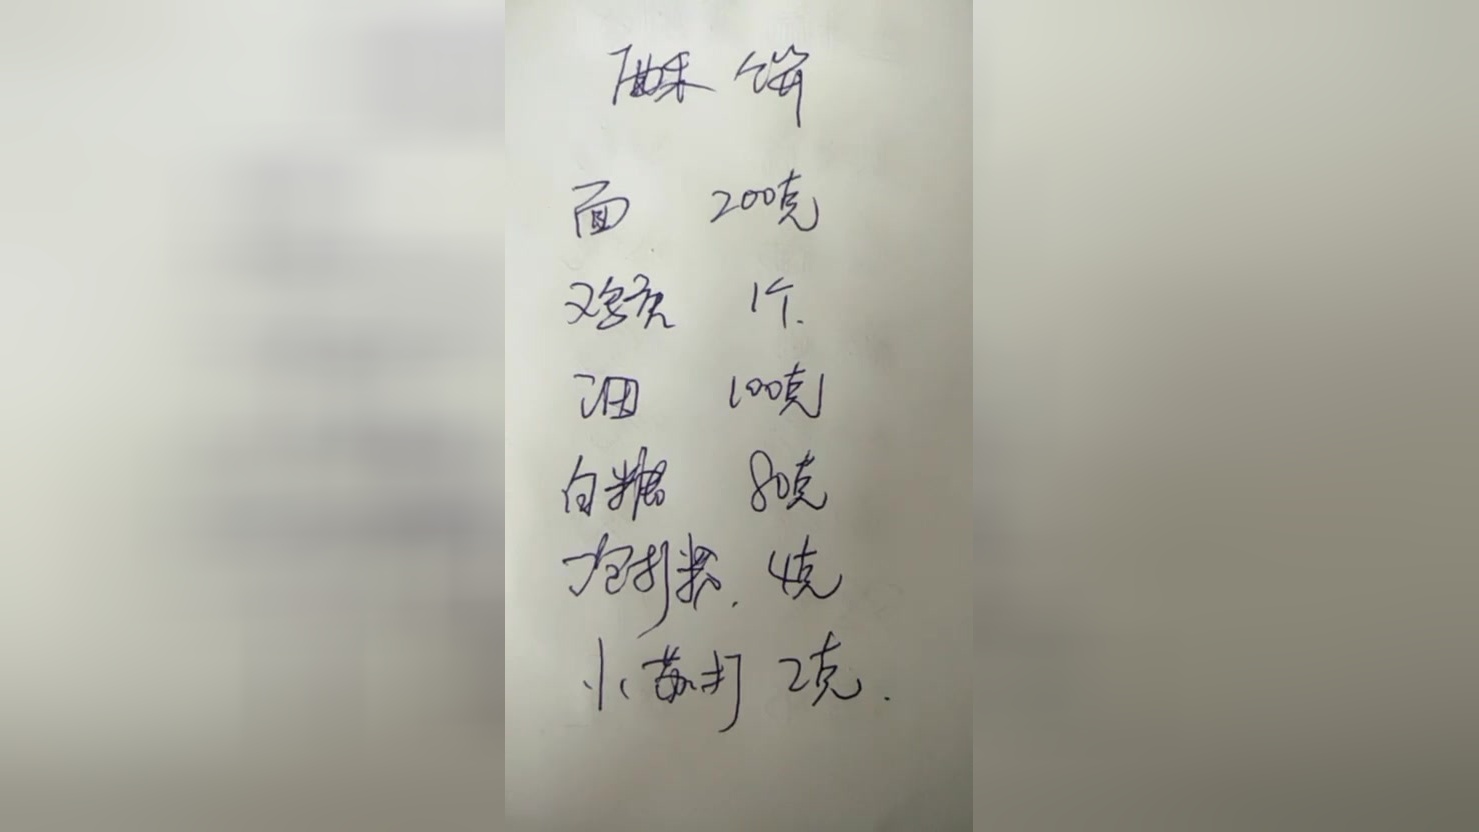 酥饼
面 200克
鸡蛋 1个.
油 100克
白糖 80克
泡打粉. 4克
小苏打 2克.